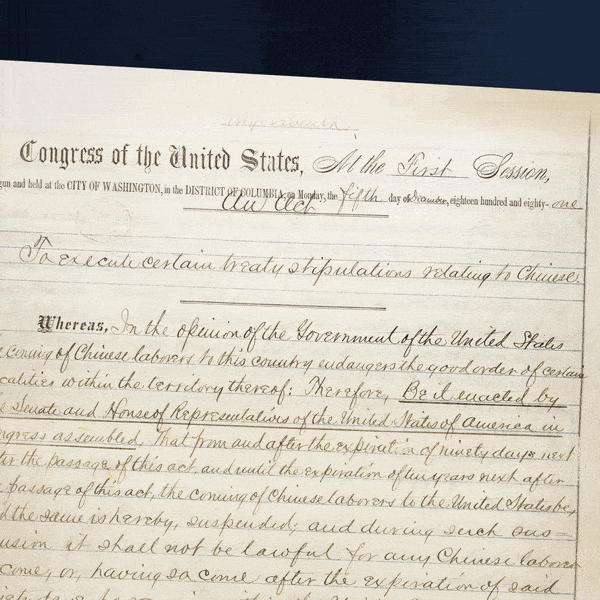 Congress of the United States, At the First Session,
gun and held at the CITY OF WASHINGTON, in the DISTRICT OF COLUMBIA, on Monday, the fifth day of December, eighteen hundred and eighty-one
An Act
To execute certain treaty stipulations relating to Chinese.
Whereas, In the opinion of the Government of the United States
coming of Chinese laborers to this country endangers the good order of certain
calities within the territory thereof: Therefore, Be it enacted by
Senate and House of Representatives of the United States of America in
ngress assembled, That from and after the expiration of ninety days next
ter the passage of this act, and until the expiration of ten years next after
passage of this act, the coming of Chinese laborers to the United States be,
d the same is hereby, suspended; and during such sus=
usion it shall not be lawful for any Chinese laborer
come, or, having so come after the expiration of said